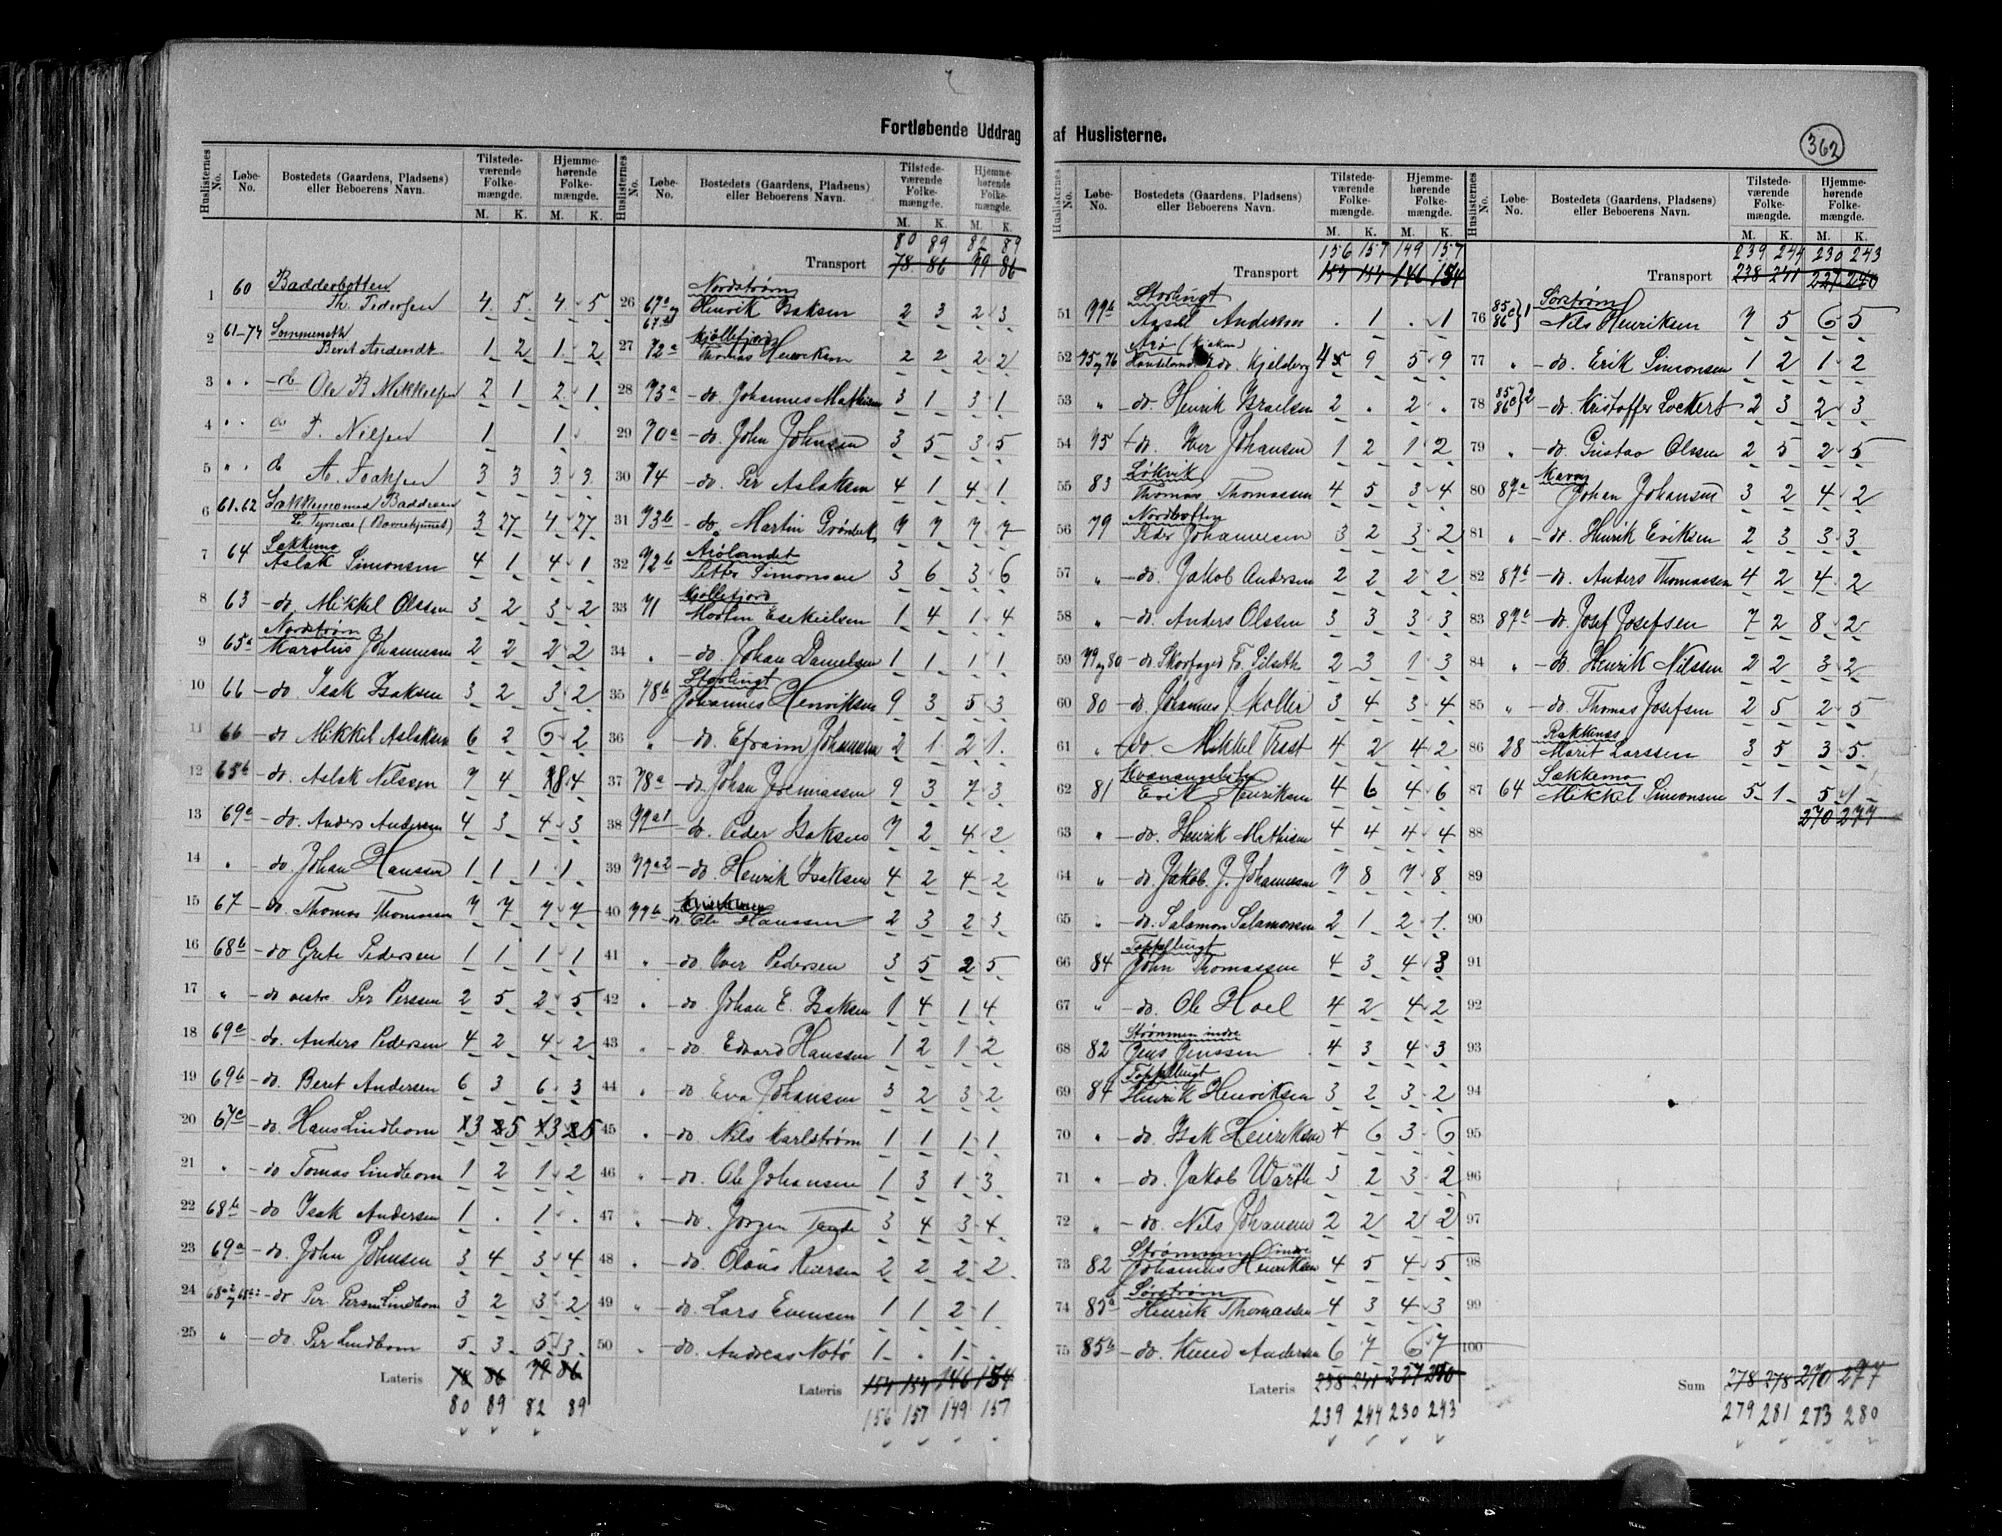 Fortløbende Uddrag af Huslisterne.
362
Huslisternes No. Løbe-No. Bostedets (Gaardens, Pladsens) eller Beboerens Navn. Tilstedeværende Folkemængde. Hjemmehørende Folkemængde. M. K. M. K.
1 60 Badderbotten
Th. Pedersen 4 5 4 5
2 61-74 Sommerseth
Beret 1 2 1 2
3 " " - do Ole B Mikkelsen 2 1 2 1
4 " " do F. Nilsen 1 1
5 " " do A. Isaksen 3 3 3 3
6 61.62 Sækkemones Badderen
3 27 4 27
7 64 Sækkemo
Aslak Simonsen 4 1 4 1
8 63 - do. Mikkel Olssen 3 2 3 2
9 65a Nordstrøm
Marolius Johannesen 2 2 2 2
10 66 - do. Isak Isaksen 3 2 3 2
11 66 - do Mikkel Aslaksen 6 2 6 2
12 65b - do. Aslak Nilssen 7 4 8 4
13 69a - do. Anders Andersen 4 3 4 3
14 " - do. Johan Hanssen 1 1 1 1
15 67 - do. Thomas Thomassen 7 7 7 7
16 68b - do Grete Pedersen 1 1 1 1
17 " - do vestre Per Perssen 2 5 2 5
18 69c - do. Anders Pedersen 4 2 4 2
19 69b - do. Beret Andersen 6 3 6 3
20 67c - do. Hans Lindbom 3 5 3 5
21 " - do Tomas Lindbom 1 2 1 2
22 68b - do Isak Andersen 1 . 1 .
23 69a - do. John Johnsen 3 4 3 4
24 - do Per Persen Lindbom 3 2 3 2
25 " - do. Per Lindbom 5 3 5 3
Lateris 78 86 79 86
80 89 82 89
Huslisternes No. Løbe-No. Bostedets (Gaardens, Pladsens) eller Beboerens Navn. Tilstedeværende Folkemængde. Hjemmehørende Folkemængde. M. K. M. K.
80 89 82 89
Transport 78 86 79 86
26 67a og 67d Nordstrøm
Henrik Isaksen 2 3 2 3
27 72a Kjøllefjord
Thomas Henriksen 2 2 2 2
28 73a - do. Johannes Mathisen 3 1 3 1
29 70a - do. John Johnsen 3 5 3 5
30 74 - do. Per Aslaksen 4 1 4 1
31 73b - do. Martin Grønbek 7 7 7 7
32 72b Arølandet
Petter Simonsen 3 6 3 6
33 71 Kjøllefjord
Morten Esekielsen 1 4 1 4
34 " - do Johan Danielsen 1 1 1 1
35 78b Storbugt
Johannes Henriksen 9 3 5 3
36 " - do. Efraim Johansen 2 1 2 1.
37 78a - do. Johan Jeremiassen 9 3 7 3
38 77a1 do. Peder Isaksen 7 2 4 2
39 77a2 - do. Henrik Isaksen 4 2 4 2
40 77b do. Ole Hanssen 2 3 2 3
41 " - do. Iver Pedersen 3 5 2 5
42 " - do. Johan E. Isaksen 1 4 1 4
43 " - do Edvard Hanssen 1 2 1 2
44 " - do Eva Johansen 3 2 3 2
45 " - do. Nils Karlstrøm 1 1 1 1
46 " - do. Ole Johansen 1 3 1 3
47 " - do. Jørgen 3 4 3 4
48 " - do. Olaus Reiersen 2 2 2 2
49 " - do. Lars Evensen 1 1 2 1
50 " - do. Andreas Notø 1 . 1 .
Lateris 154 154 146 154
156 157 149 157
Huslisternes No. Løbe-No. Bostedets (Gaardens, Pladsens) eller Beboerens Navn. Tilstedeværende Folkemængde. Hjemmehørende Folkemængde. M. K. M. K.
156 157 149 157
Transport 154 154 146 154
51 77b Storbugt
Aksel Andersen . 1 . 1
52 75 og 76 Arø
Kjelsberg 4 9 5 9
53 " - do. Henrik Israelsen 2 . 2 .
54 75 do. Iver Johansen 1 2 1 2
55 83 Løkvik
Thomas Thomassen 4 5 3 4
56 79 Nordbotten
Peder Johannesen 3 2 3 2
57 " - do. Jakob Andersen 2 2 2 2
58 " - do. Anders Olssen 3 3 3 3
59 79 og 80 - do Skovfoged 2 3 1 3
60 80 - do. Johannes J. Møller 3 4 3 4
61 " do Mikkel Trast 4 2 4 2
62 81 Kvænangsbotn
Erik Henriksen 4 6 4 6
63 " - do. Henrik Mathisen 4 4 4 4
64 " - do. Jakob J. Johannesen 7 8 7 8
65 " - do. Salamon Salamonsen 2 1 2 1.
66 84 Toppelbugt
John Thomassen 4 3 4 3
67 " - do. Ole Hoel 4 2 4 2
68 82 Strømmen indre
Jens Jenssen 4 3 4 3
69 84 Toppelbugt
Henrik Henriksen 3 2 3 2
70 " - do. Isak Henriksen 4 6 3 6
71 " - do. Jakob Warth 3 2 3 2
72 " - do. Nils Johansen 2 2 2 2
73 82 Strømmen indre
Johannes Henriksen 4 5 4 5
74 85a Sørstrøm
Henrik Thomassen 4 3 4 3
75 85b - do. Knud Andersen 6 7 6 7
Lateris 238 241 227 240
239 244 230 243
Huslisternes No. Løbe-No. Bostedets (Gaardens, Pladsens) eller Beboerens Navn. Tilstedeværende Folkemængde. Hjemmehørende Folkemængde. M. K. M. K.
239 244 230 243
Transport 238 241 227 240
76 85c 86 }1 Sørstrøm
Nils Henriksen 7 5 6 5
77 " - do. Erik Simonsen 1 2 1 2
78 85c 86 }2 - do. Kristoffer Lockert 2 3 2 3
79 " - do. Gustav Olssen 2 5 2 5
80 87a Navar
Johan Johansen 3 2 4 2
81 " - do. Henrik Eriksen 2 3 3 3
82 87b - do. Anders Thomassen 4 2 4 2
83 87a - do. Josef Josefsen 7 2 8 2
84 " - do. Henrik Nilssen 2 2 3 2
85 " - do. Thomas Josefsen 2 5 2 5
86 28 Rakkenæs
Marit Larssen 3 5 3 5
87 64 Sækkemo
Mikkel Simonsen 5 1 5 1
270 277
88
89
90
91
92
93
94
95
96
97
98
99
100
Sum 278 278 270 277
279 281 273 280